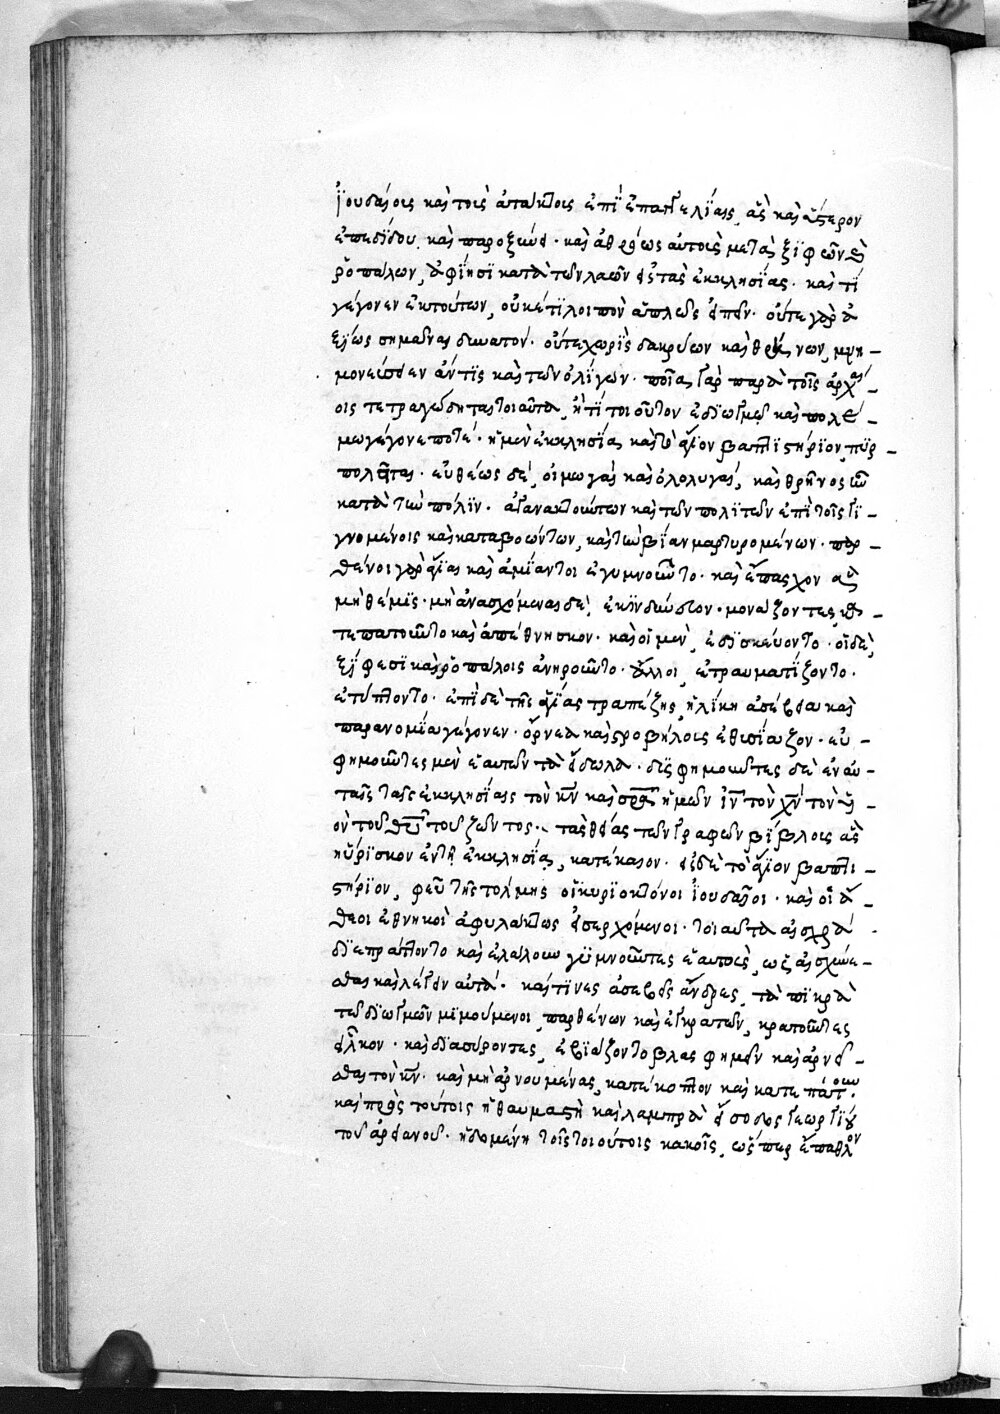 ἰουδαίοις καὶ τοῖς ἀτάκτοις ἐπὶ ἐπαγγελίαις, ἃς καὶ ὕστερον
ἐπεδίδου, καὶ παροξύνει· καὶ ἀθρόως αὐτοῖς μετὰ ξιφῶν καὶ
ῥοπάλων, ἀφίησι κατὰ τῶν λαῶν εἰς τὰς ἐκκλησίας· καὶ τί
γέγονεν ἐκ τούτων, οὐκέτι λοιπὸν ἁπλῶς εἰπεῖν· οὔτε γὰρ ἀ
ξίως σημᾶναι δυνατόν· οὔτε χωρὶς δακρύων καὶ θρήνων, μνη-
μονεύσειεν ἄν τις καὶ τῶν ὀλίγων· ποῖα γὰρ παρὰ τοῖς ἀρχαί-
οις τετραγώδηται τοιαῦτα, ἢ τί τοιοῦτον ἐν διωγμῷ καὶ πολέ-
μω γέγονε ποτέ· ἡ μὲν ἐκκλησία καὶ τὸ ἅγιον βαπτιστήριον, πυρ-
πολεῖται· εὐθέως δὲ, οἰμωγαὶ καὶ ὀλολυγαί, καὶ θρῆνος ἦν
κατὰ τὴν πόλιν· ἀγανακτούντων καὶ τῶν πολιτῶν ἐπὶ τοῖς γι-
γνομένοις καὶ καταβοώντων, καὶ τὴν βίαν μαρτυρομένων· παρ-
θένοι γὰρ ἅγιαι καὶ ἀμίαντοι ἐγυμνοῦντο· καὶ ἔπασχον ἃ
μὴ θέμις· μὴ ἀνασχόμεναι δὲ, ἐκινδύνευον· μονάζοντες, κα-
τεπατοῦντο καὶ ἀπέθνησκον· καὶ οἱ μὲν, ἐδισκεύοντο· οἱ δὲ,
ξίφεσι καὶ ῥοπάλοις ἀνηροῦντο· ἄλλοι, ἐτραυματίζοντο·
ἐτύπτοντο· ἐπὶ δὲ τῆς ἁγίας τραπέζης, ἡλίκη ἀσέβεια καὶ
παρανομία γέγονεν· ὄρνεα καὶ στροβήλοις ἐθυσίαζον· εὐ-
φημοῦντες μὲν ἑαυτῶν τὰ εἴδωλα· δυσφημοῦντες δὲ ἐν αὐ-
ταῖς ταῖς ἐκκλησίαις τὸν κν̅ καὶ σρα̅ ἡμῶν ἰν̅ τὸν χν̅ τὸν ὑ-
ὸν τοῦ θυ̅ τοῦ ζῶντος· τὰς θείας τῶν γραφῶν βίβλοις ἃς
ηὕρισκον ἐν τῇ ἐκκλησία, κατέκαιον· εἰς δὲ τὸ ἅγιον βαπτι-
στήριον, φεῦ τῆς τόλμης οἱ κυριοκτόνοι ἰουδαῖοι· καὶ οἱ ἄ-
θεοι ἐθνικοὶ ἀφυλάκτως εἰσερχόμενοι· τοιαῦτα αἰσχρὰ
διεπράττοντο καὶ ἐλάλουν γυμνοῦντες ἑαυτοὺς, ὡς αἰσχύνε-
σθαι καὶ λέγειν αὐτά· καί τινες ἀσεβεῖς ἄνδρες, τὰ πικρὰ
τῶν διωγμῶν μιμούμενοι, παρθένων καὶ ἐγκρατῶν, κρατοῦντες
εἷλκον· καὶ διασύροντες, ἐβιάζοντο βλασφημεῖν καὶ ἀρνεῖ-
σθαι τὸν κν̅· καὶ μὴ ἀρνουμένας, κατέκοπτον καὶ κατεπάτουν·
καὶ πρὸς τούτοις ἡ θαυμαστὴ καὶ λαμπρὰ εἴσοδος γεωργίου
τοῦ ἀρειανοῦ· ἡδομένη τοῖς τοιούτοις κακοῖς, ὥσπερ ἔπαθλον